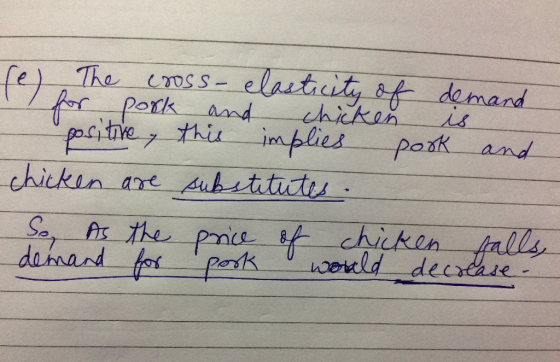 (e) The cross-elasticity of demand
for pork and chicken is
positive, this implies pork and
chicken are substitutes.
So, As the price of chicken falls,
demand for pork would decrease.